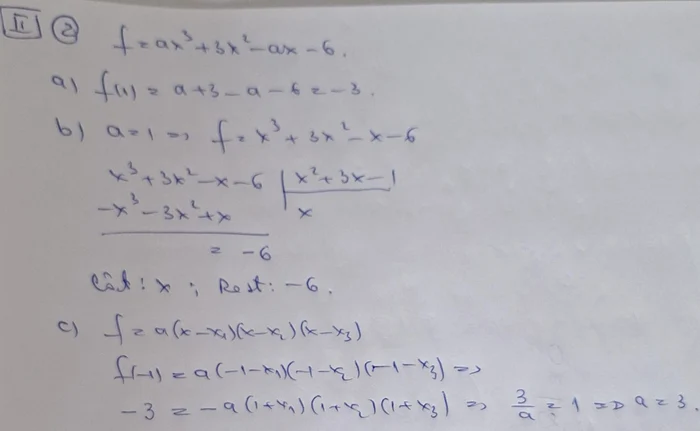 II 2 f = ax³ + 3x² - ax - 6.
a) f(1) = a + 3 - a - 6 = -3.
b) a = 1 => f = x³ + 3x² - x - 6
x³ + 3x² - x - 6 | x² + 3x - 1
-x³ - 3x² + x x
= -6
Cât: x ; Rest: -6.
c) f = a(x - x₁)(x - x₂)(x - x₃)
f(-1) = a(-1 - x₁)(-1 - x₂)(-1 - x₃) =>
-3 = -a(1 + x₁)(1 + x₂)(1 + x₃) => 3/a = 1 => a = 3.